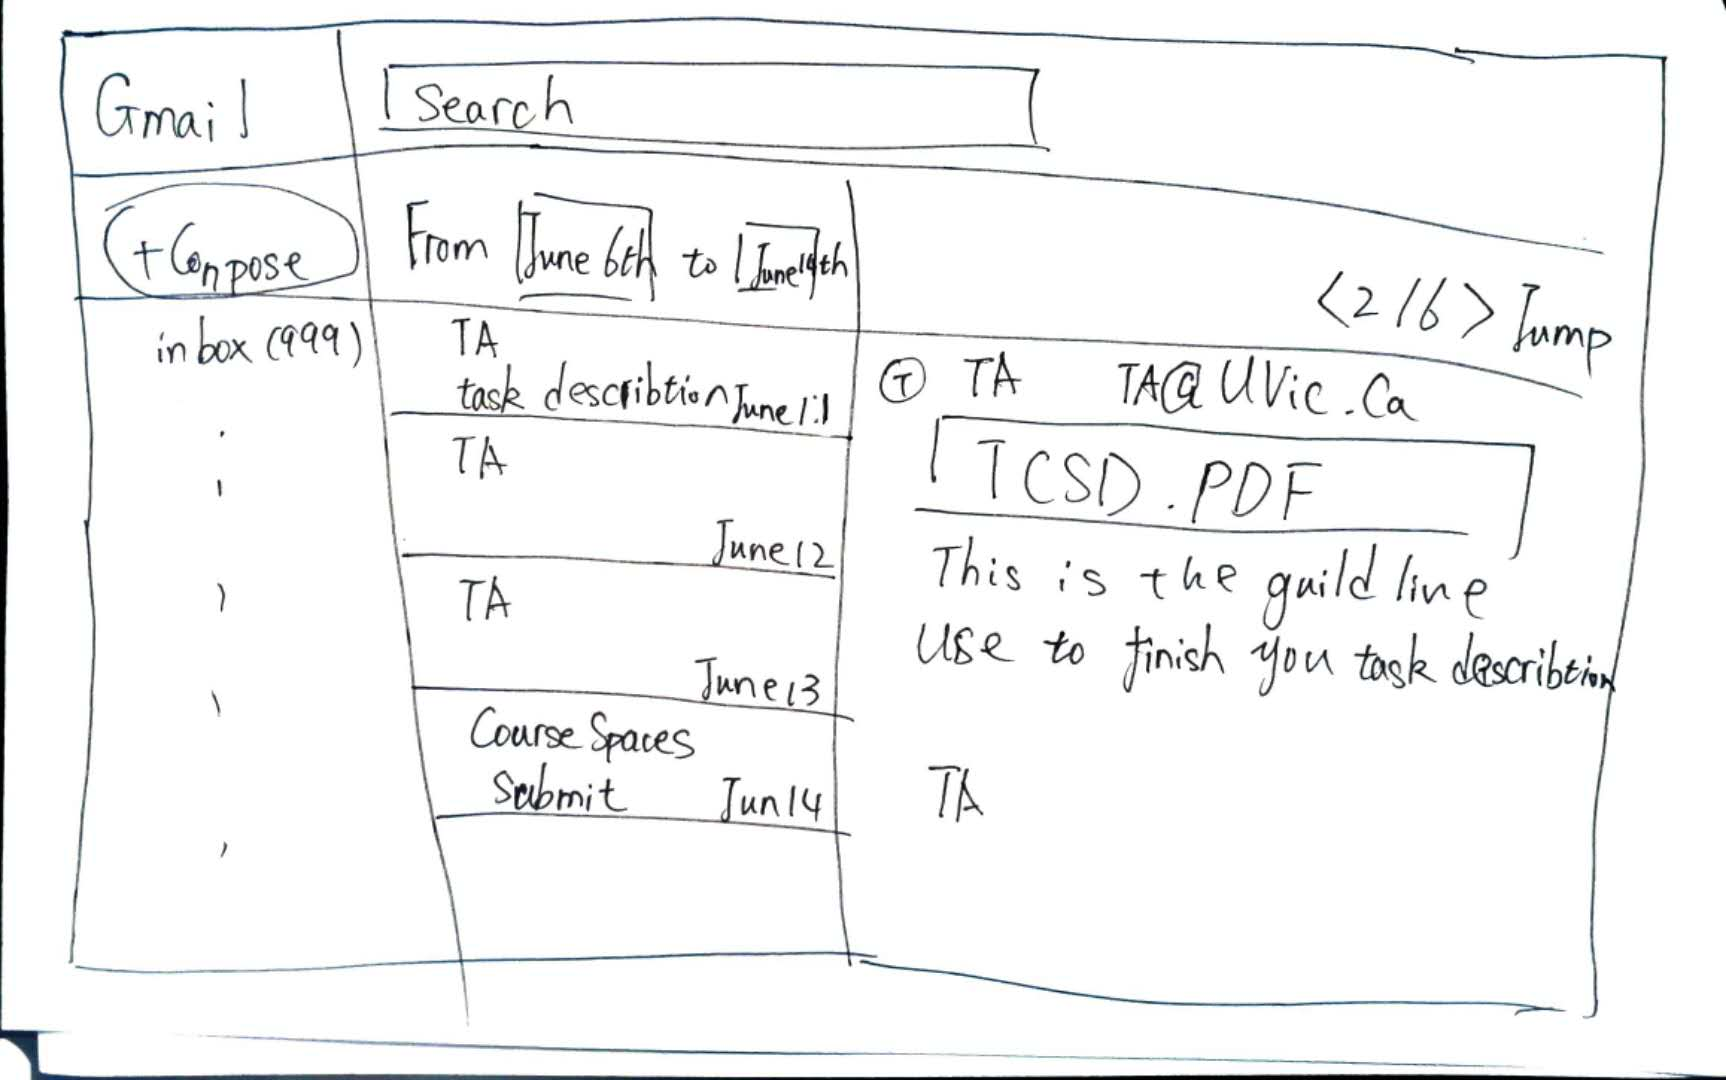 Gmail
Search
+Compose
From June 6th to June 14th
<2/6> Jump
inbox (999)
TA
task describtion June 11
TA
June 12
TA
June 13
Course Spaces
Submit Jun 14
T TA TA@UVic.Ca
TCSD.PDF
This is the guild line
Use to finish you task describtion
TA